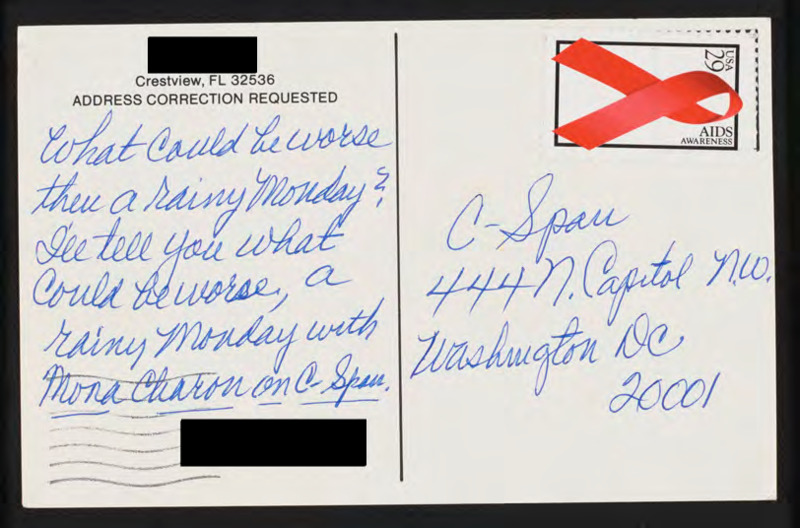 Crestview, FL 32536
ADDRESS CORRECTION REQUESTED
What could be worse
then a rainy Monday?
I'll tell you what
could be worse, a
rainy Monday with
Mona Charon on C-Span.
USA
29
AIDS
AWARENESS
C-Span
444 N. Capitol N.W.
Washington DC
20001